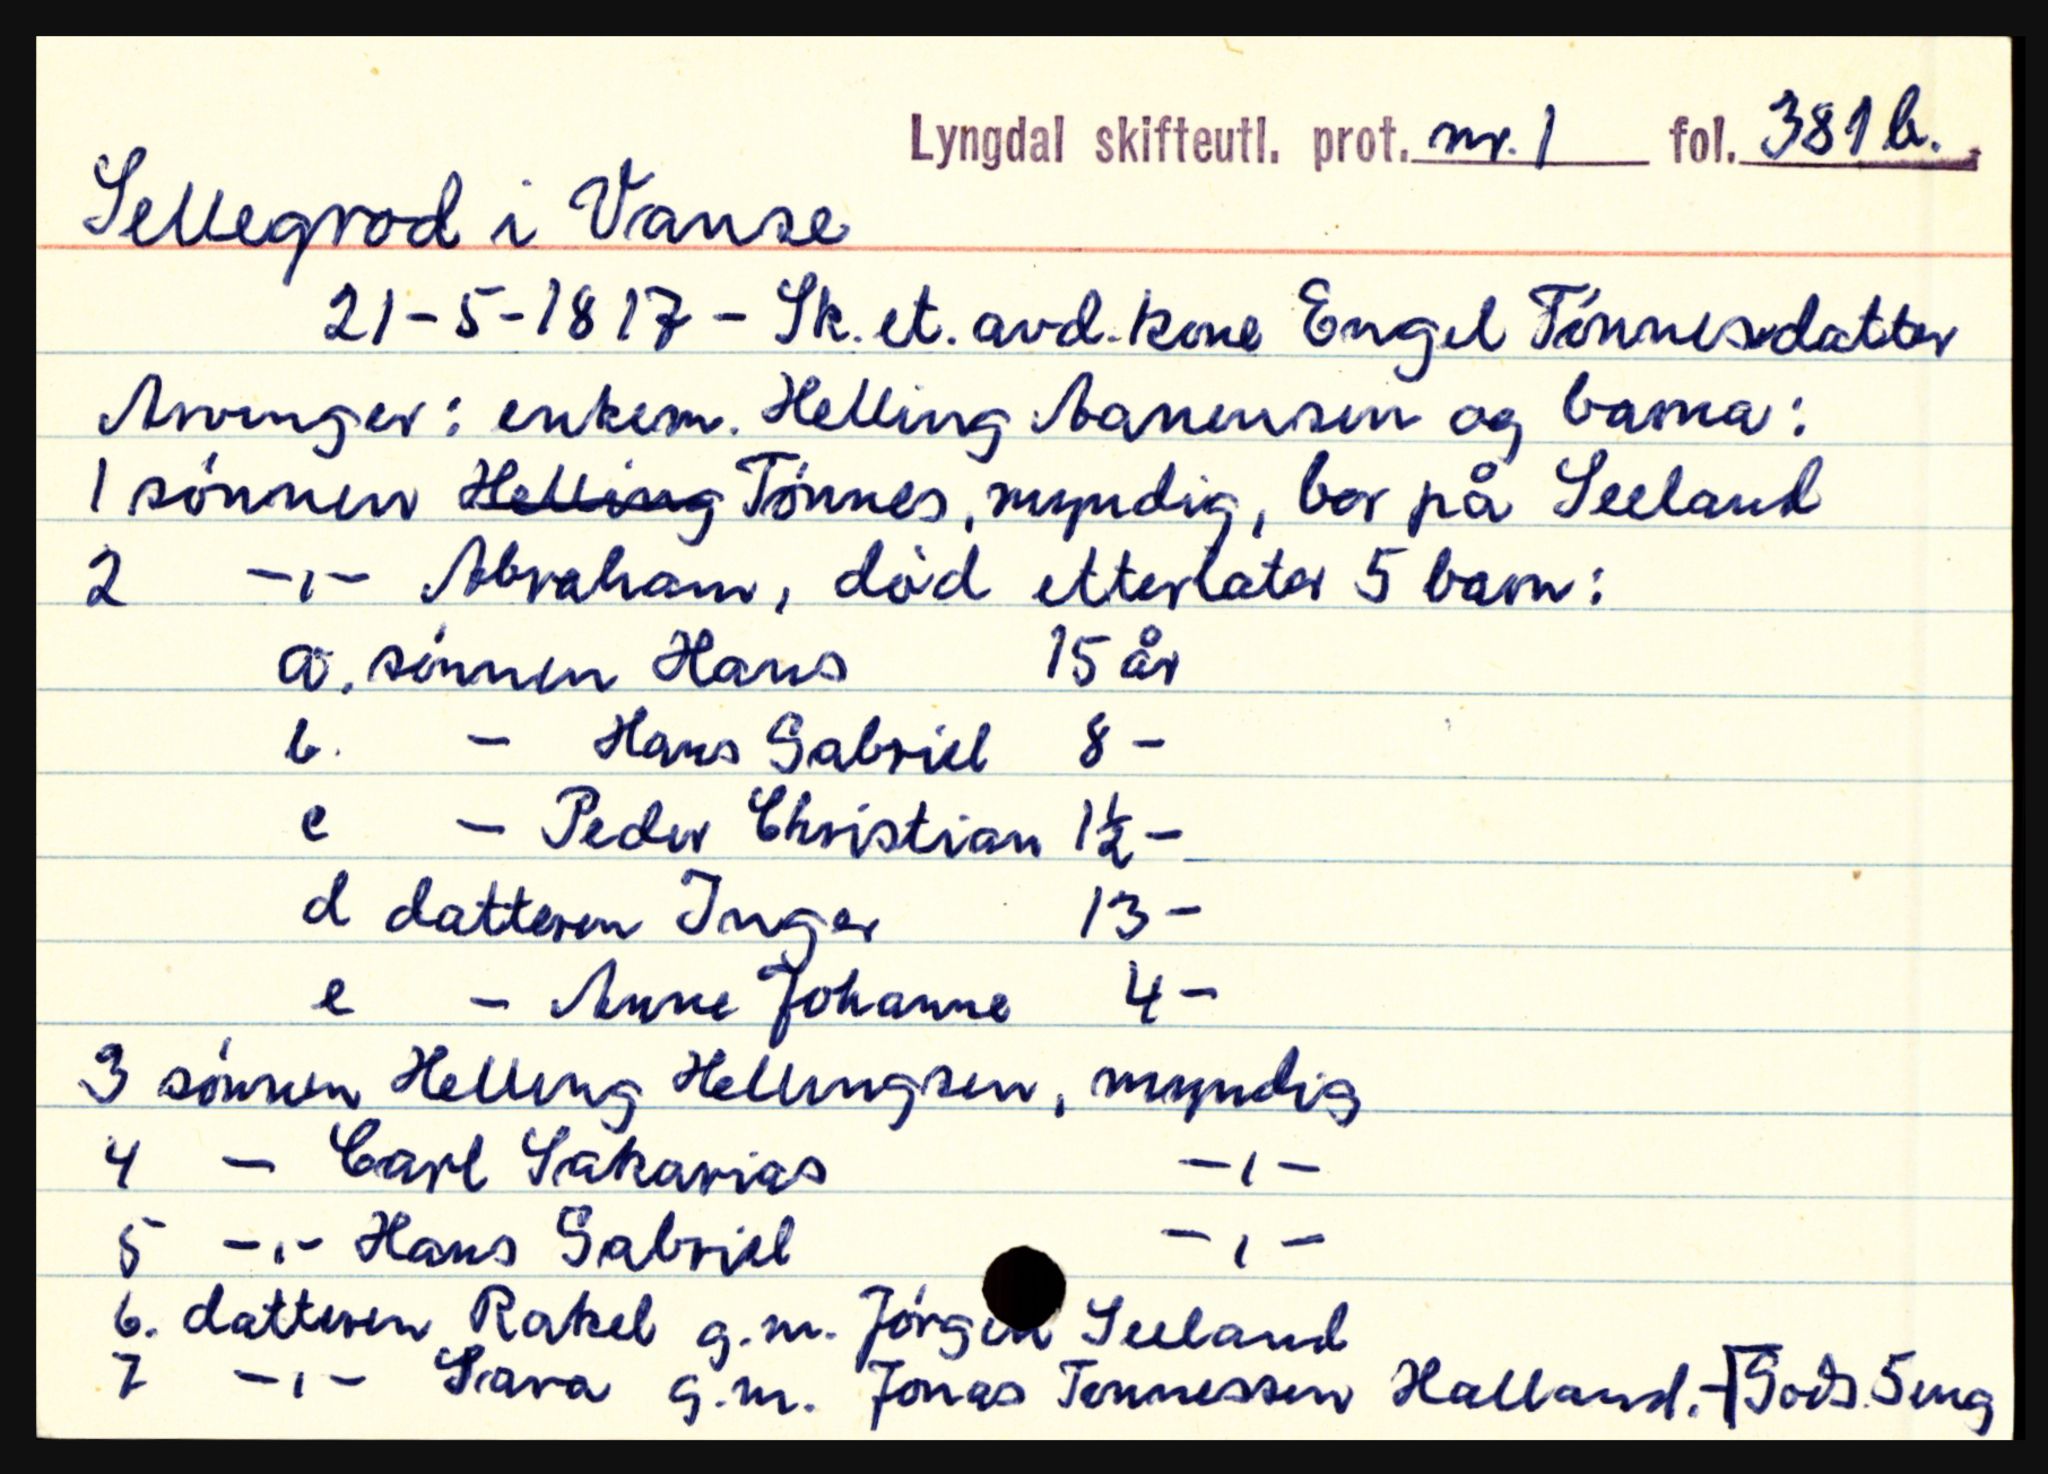 Lyngdal skifteutl. prot. nr. 1 fol. 381 b.
Sellegrod i Vanse
21-5-1817 - Sk. et. avd. kone Engel Tónnesdatter
Arvinger: enkem. Helling Aanensen og barna:
1 sónnen Helling Tónnes, myndig, bor på Seeland
2 -,- Abraham, dód etterlater 5 barn:
a. sónnen Hans 15 år
b. - Hans Gabriel 8 -
c - Peder Christian 1½ -
d datteren Inger 13 -
e - Anne Johanne 4 -
3 sónnen Helling Hellingsen, myndig
4 - Carl Sakarias -,-
5 -,- Hans Gabriel -,-
6. datteren Rakel g.m. Jórgen Seeland
7 -,- Sara g.m. Jonas Tonnessen Halland. - Gods. 5 eng